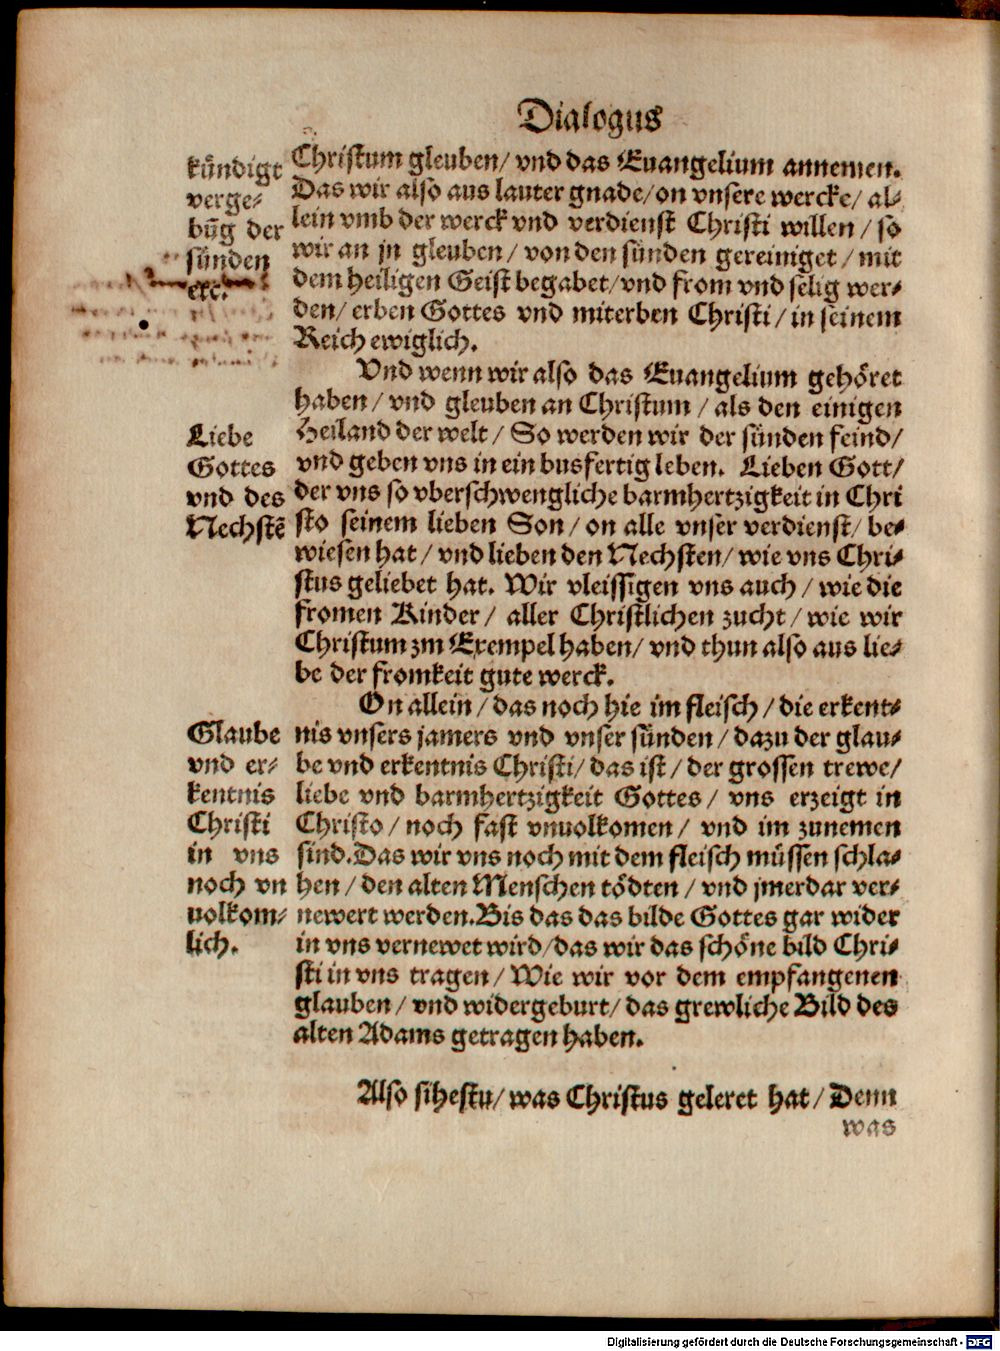 Dialogus
kündigt
verge-
bũg der
sünden
etc.
Christum gleuben/ vnd das Euangelium annemen.
Das wir also aus lauter gnade/ on vnsere wercke/ al-
lein vmb der werck vnd verdienst Christi willen/ so
wir an jn gleuben/ von den sünden gereiniget/ mit
dem heiligen Geist begabet/ vnd from vnd selig wer-
den/ erben Gottes vnd miterben Christi/ in seinem
Reich ewiglich.
Vnd wenn wir also das Euangelium gehöret
haben/ vnd gleuben an Christum/ als den einigen
Heiland der welt/ So werden wir der sünden feind/
vnd geben vns in ein busfertig leben. Lieben Gott/
der vns so vberschwengliche barmhertzigkeit in Chri
sto seinem lieben Son/ on alle vnser verdienst/ be-
wiesen hat/ vnd lieben den Nechsten/ wie vns Chri-
stus geliebet hat. Wir vleissigen vns auch/ wie die
fromen Kinder/ aller Christlichen zucht/ wie wir
Christum zm Exempel haben/ vnd thun also aus lie-
be der fromkeit gute werck.
Liebe
Gottes
vnd des
Nechstẽ
On allein/ das noch hie im fleisch/ die erkent-
nis vnsers jamers vnd vnser sünden/ dazu der glau-
be vnd erkentnis Christi/ das ist/ der grossen trewe/
liebe vnd barmhertzigkeit Gottes/ vns erzeigt in
Christo/ noch fast vnuolkomen/ vnd im zunemen
sind. Das wir vns noch mit dem fleisch müssen schla-
hen/ den alten Menschen tödten/ vnd jmerdar ver-
newert werden. Bis das das bilde Gottes gar wider
in vns vernewet wird/ das wir das schöne bild Chri-
sti in vns tragen/ Wie wir vor dem empfangenen
glauben/ vnd widergeburt/ das grewliche Bild des
alten Adams getragen haben.
Glaube
vnd er-
kentnis
Christi
in vns
noch vn
uolkom-
lich.
Also sihestu/ was Christus geleret hat/ Denn
was
Digitalisierung gefördert durch die Deutsche Forschungsgemeinschaft - DFG